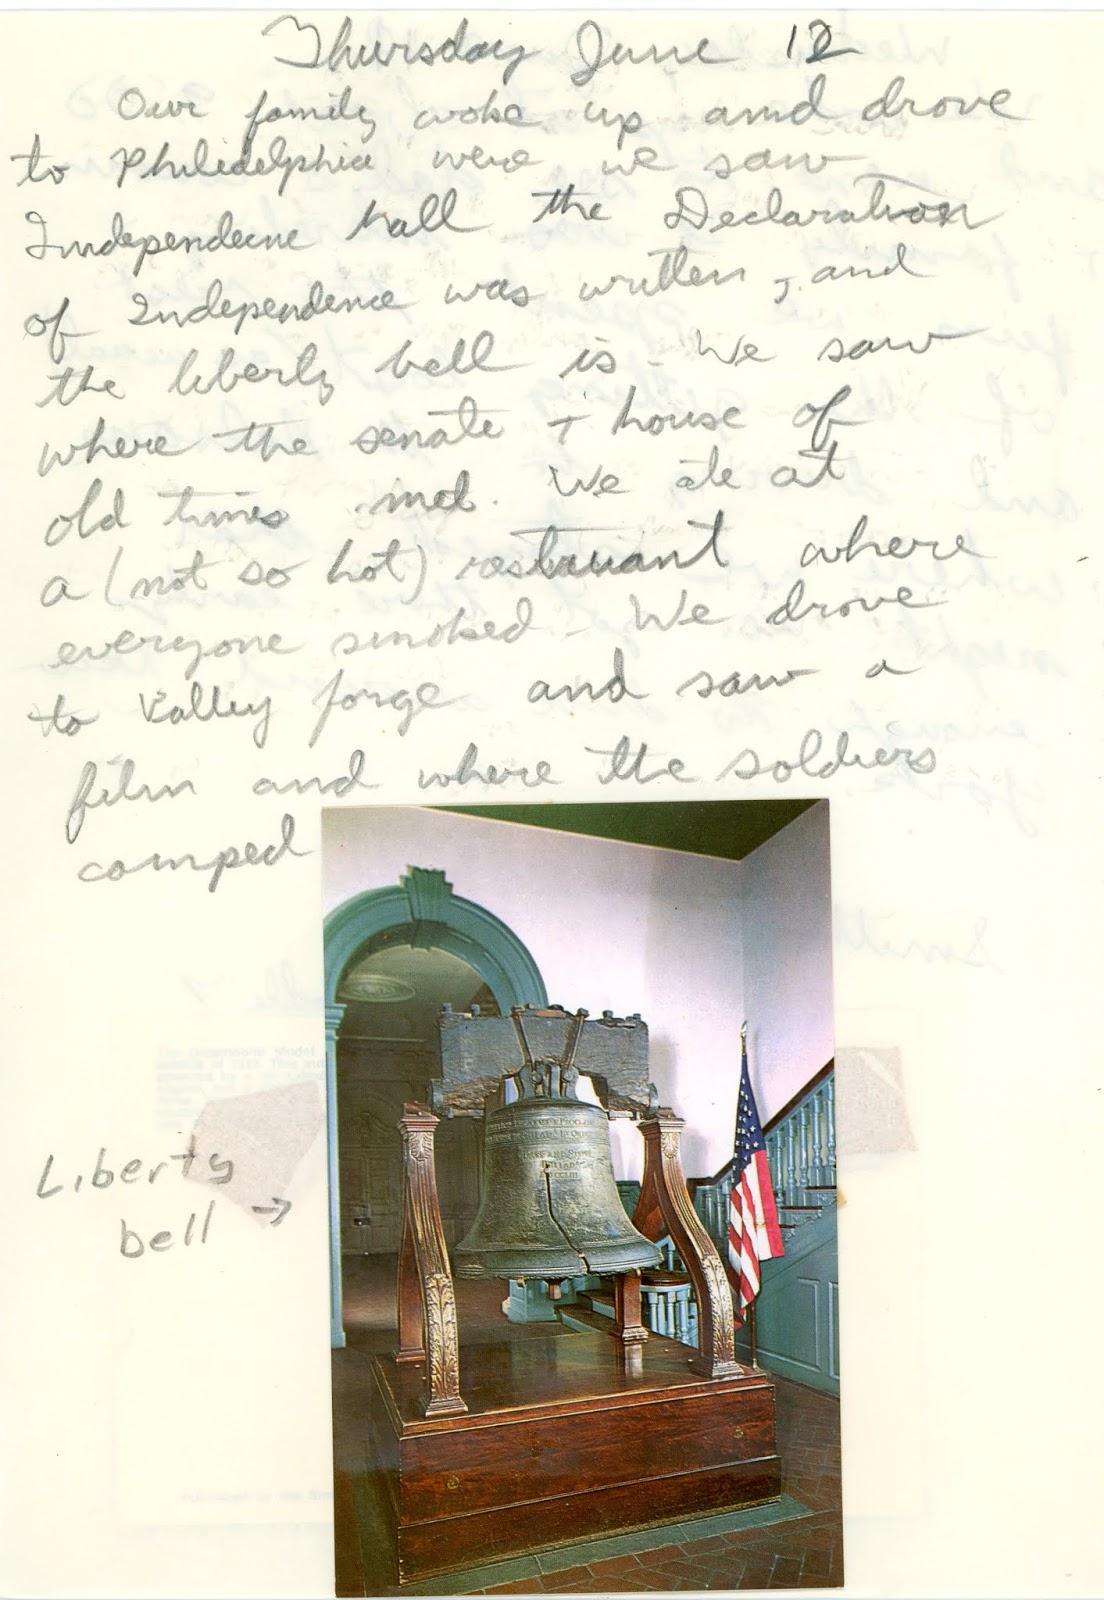 Thursday June 12
Our family woke up amd drove
to Philidelphia were we saw
Independecne hall the Declaration
of Independence was written, and
the liberly bell is. We saw
where the senate + house of
old times met. We ate at
a (not so hot) resturuant where
everyone smoked. We drove
to Valley forge and saw a
film and where the soldiers
comped
Liberty
bell →
PASS AND STOW